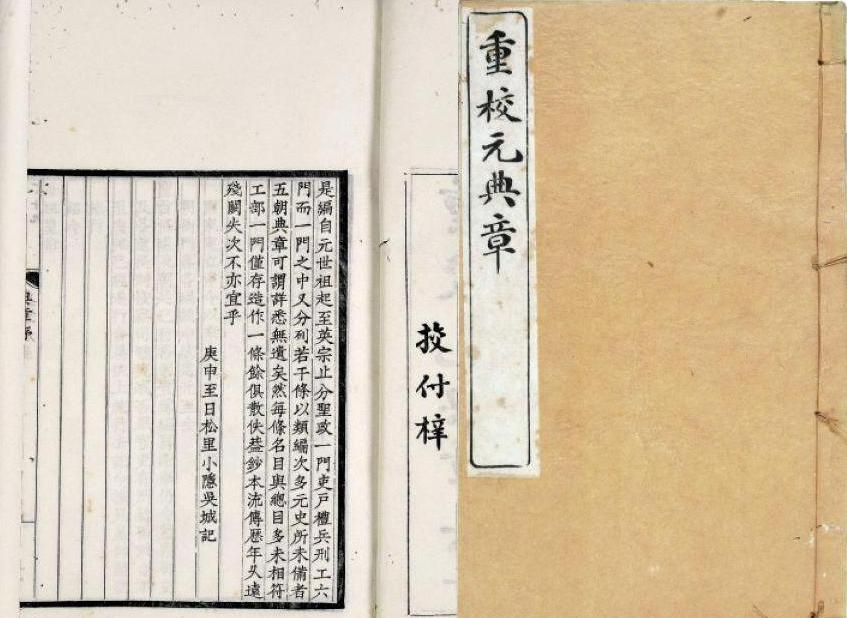 重校元典章
挍付梓
是編自元世祖起至英宗止分聖政一門吏戶禮兵刑工六
門而一門之中又分列若干條以類編次多元史所未備者
五朝典章可謂詳悉無遺矣然每條名目與總目多未相符
工部一門僅存造作一條餘俱散佚葢鈔本流傳歷年久遠
殘闕失次不亦宜乎
庚申至日松里小隱吳城記
典章序